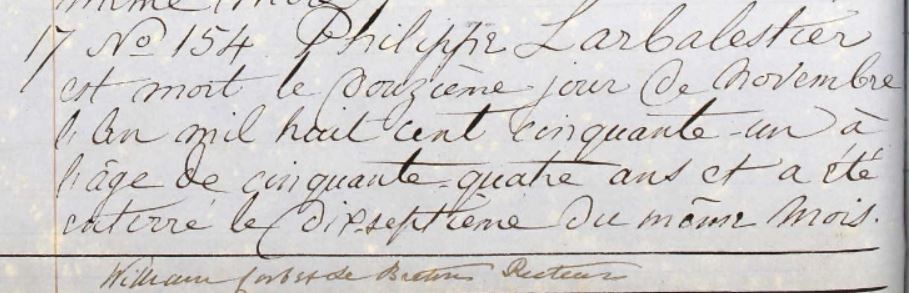 même mois.
17 No 154. Philippe Larbalestier
est mort le Douzième jour de Novembre
l'An mil huit cent cinquante-un à
l'âge de cinquante-quatre ans et a été
enterré le dix-septième du même Mois.
William Corbet Le Breton Recteur